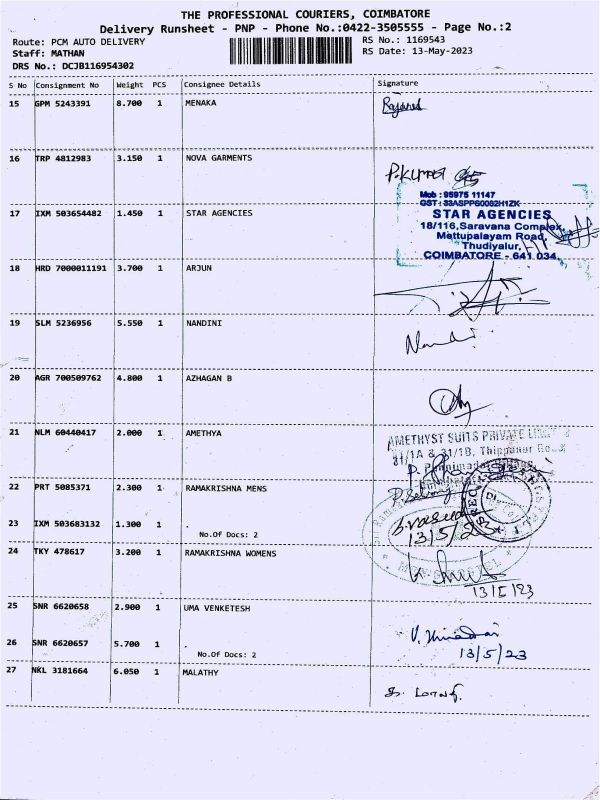 THE PROFESSIONAL COURIERS, COIMBATORE
Delivery Runsheet - PNP - Phone No.:0422-3505555 - Page No.:2
Route: PCM AUTO DELIVERY
RS No.: 1169543
Staff: MATHAN
RS Date: 13-May-2023
DRS No.: DCJB116954302
S No Consignment No Weight PCS Consignee Details Signature
15 GPM 5243391 8.700 1 MENAKA
16 TRP 4812983 3.150 1 NOVA GARMENTS
P.KUMAR
Mob : 95975 11147
GST : 33ASPPS0082H1ZK
17 IXM 503654482 1.450 1 STAR AGENCIES
STAR AGENCIES
18/116,Saravana Complex,
Mettupalayam Road,
Thudiyalur,
COIMBATORE - 641 034.
18 HRD 7000011191 3.700 1 ARJUN
19 SLM 5236956 5.550 1 NANDINI
20 AGR 700509762 4.800 1 AZHAGAN B
21 NLM 60440417 2.000 1 AMETHYA
AMETHYST SUITS PRIVATE
31/1A & 31/1B, Thippanur Road
22 PRT 5085371 2.300 1 RAMAKRISHNA MENS
23 IXM 503683132 1.300 1 .
No.Of Docs: 2
13/5/23
24 TKY 478617 3.200 1 RAMAKRISHNA WOMENS
13/5/23
25 SNR 6620658 2.900 1 UMA VENKETESH
26 SNR 6620657 5.700 1 .
No.Of Docs: 2
13/5/23
27 NKL 3181664 6.050 1 MALATHY